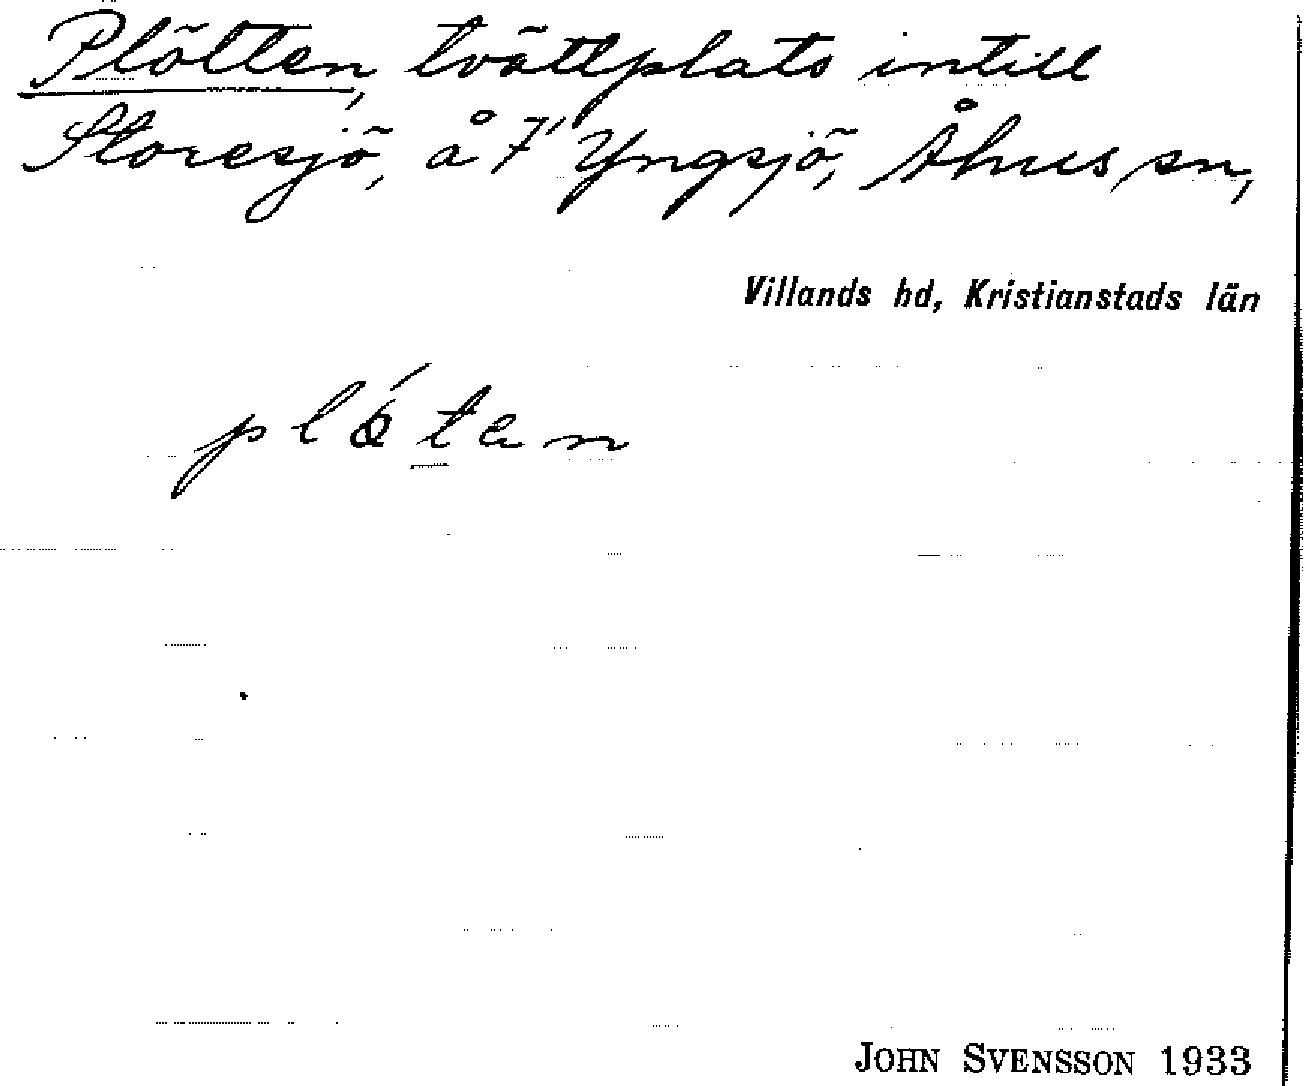 Plötten, tvättplats intill
Storesjö, å 7¹ Yngsjö, Åhus sn,
Villands hd, Kristianstads län
JOHN SVENSSON 1933